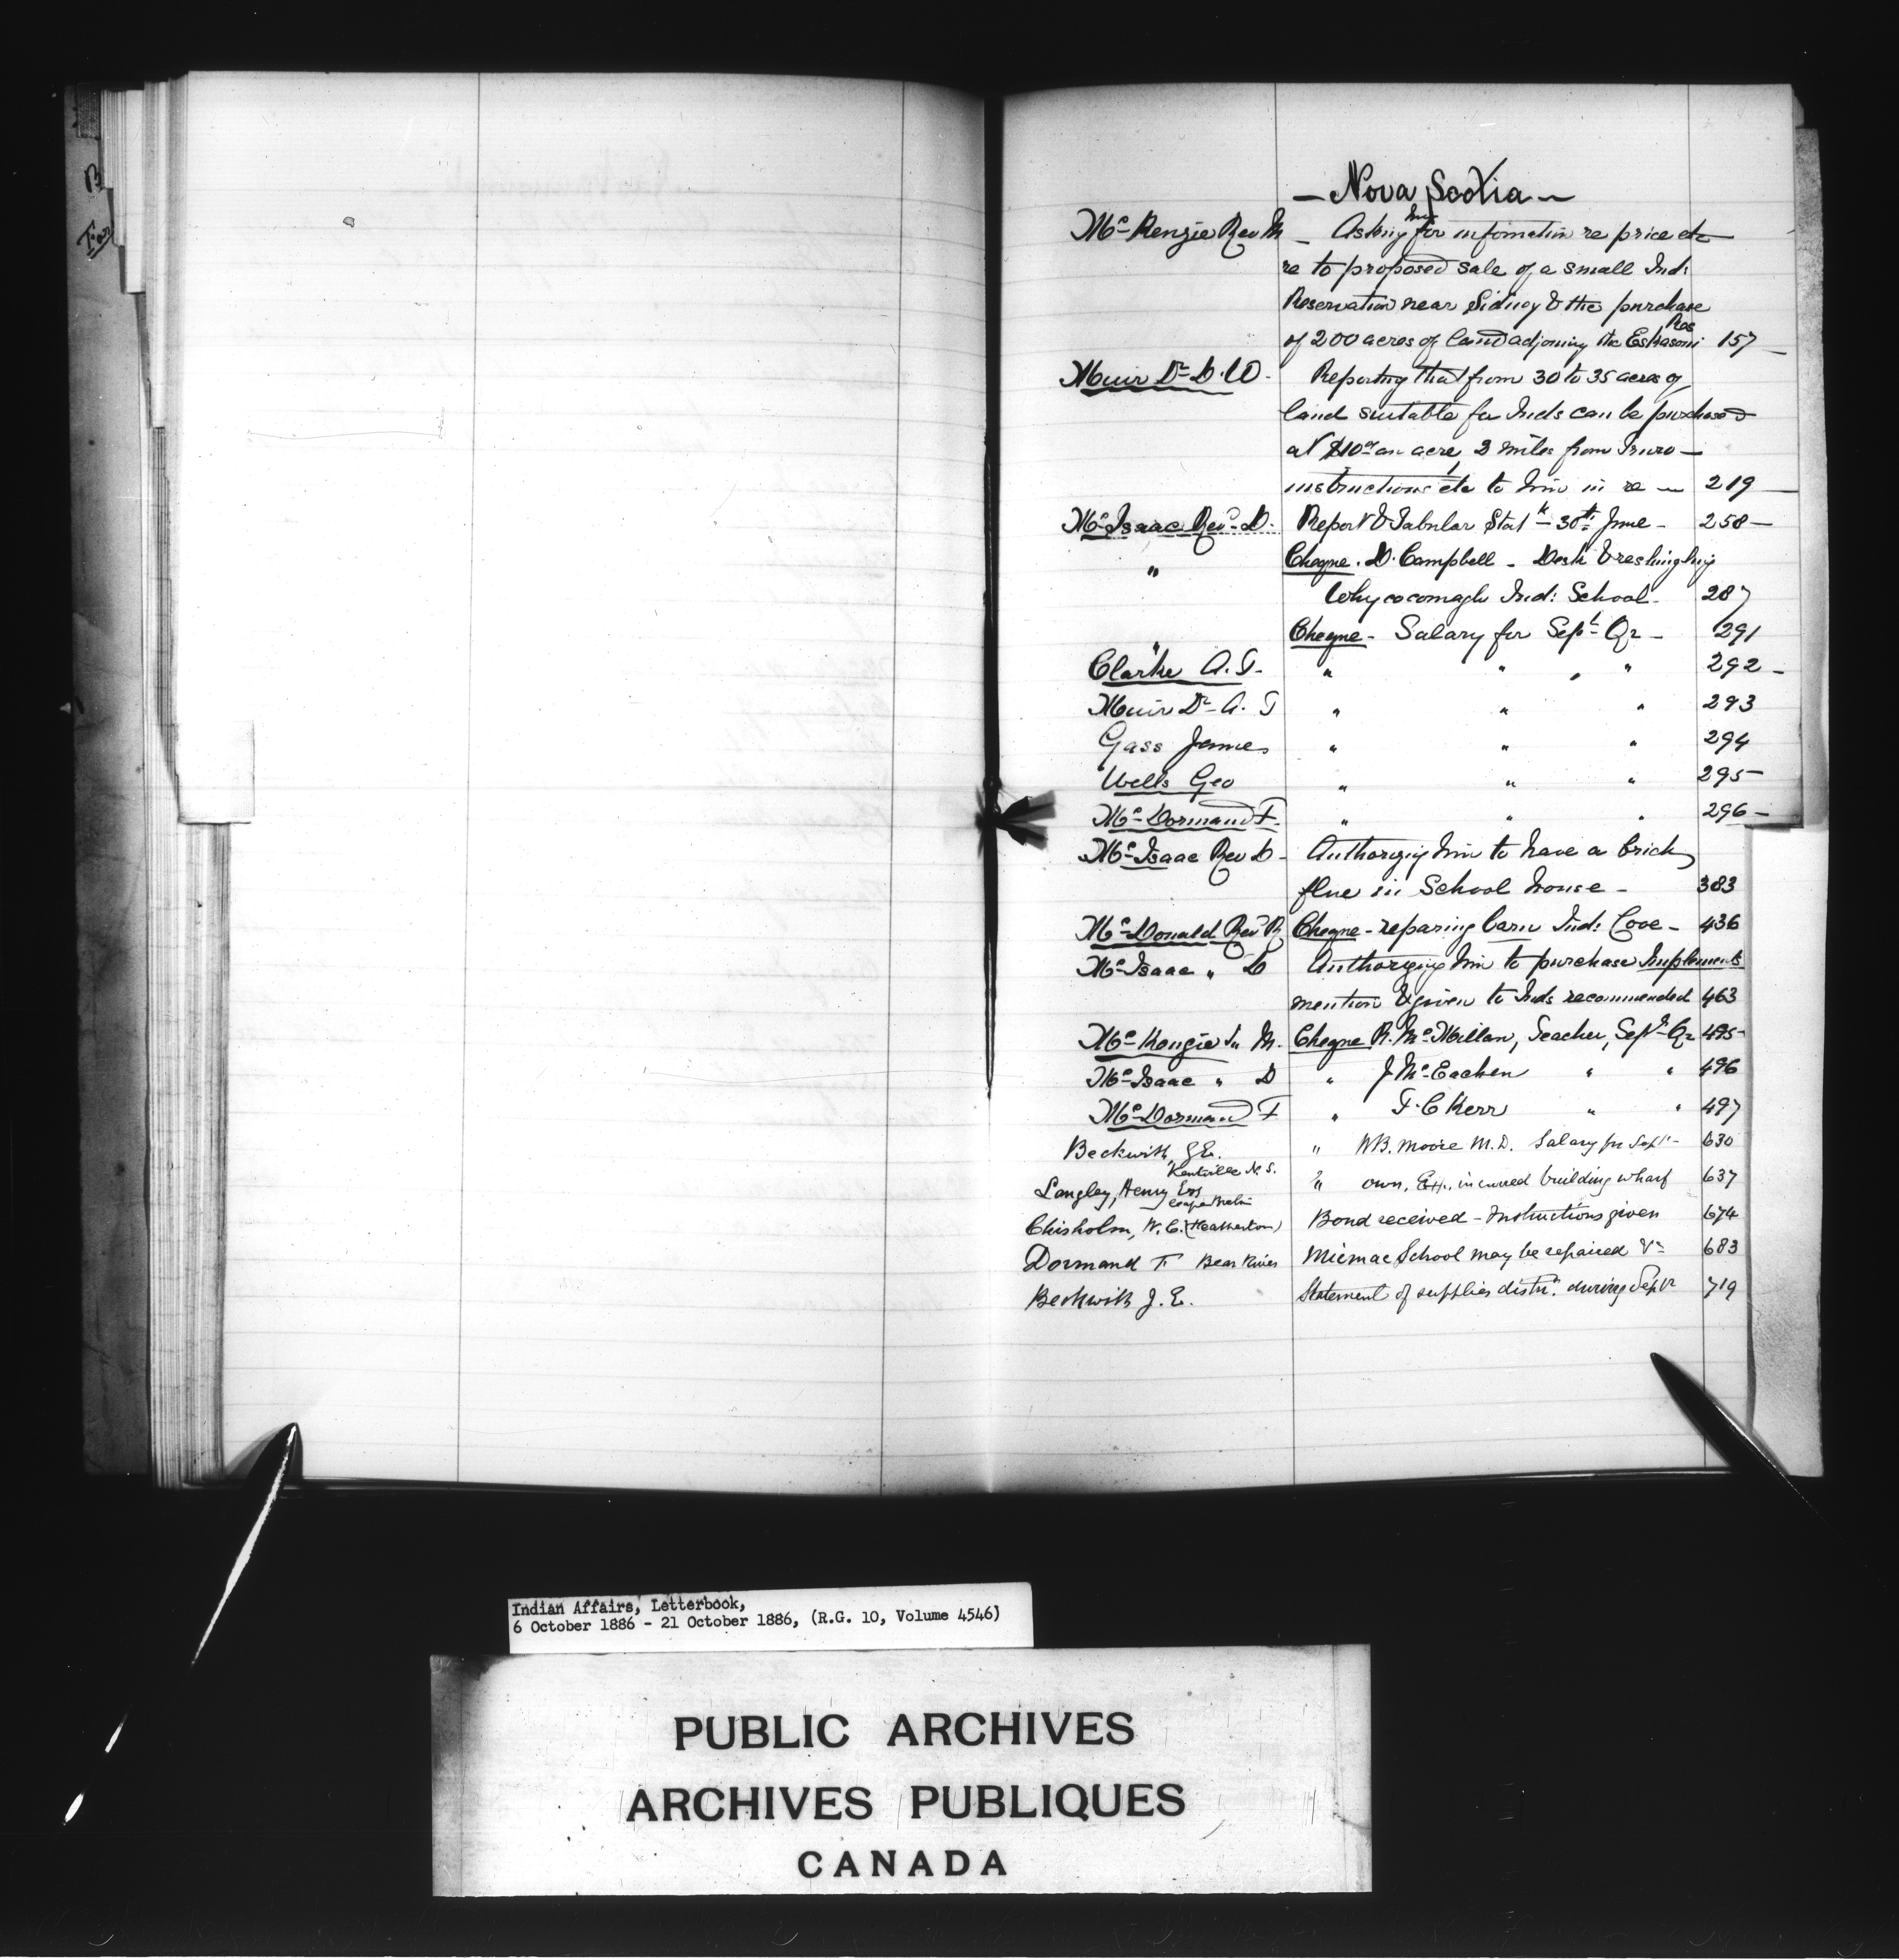 — Nova Scotia —
Mc Kenzie Rev M — Asking him for information re price etc
re to proposed sale of a small Ind:
Reservation near Sidney & the purchase
of 200 acres of land adjoining the Eskasoni Res 157 —
Muir Dr D. W. Reporting that from 30 to 35 acres of
land suitable for Inds can be purchased
at $10.00 an acre, 2 miles from Truro —
instructions etc to him in re — 219 —
Mc Isaac Revd D. Report & Tabular Stat 30th June — 258 —
" Cheque. D. Campbell — Desk &
Whycocomagh Ind: School — 287
" Cheque — Salary for Sept Qr — 291
Clarke A. T. " " " " 292 —
Muir Dr A. T " " " 293
Gass James " " " 294
Wells Geo " " " 295 —
Mc Dormand F. " " " 296 —
Mc Isaac Rev D — Authorizing him to have a brick
flue in School house — 383
Mc Donald Revd R Cheque — reparing barn Ind: Cove — 436
Mc Isaac " D Authorizing him to purchase Implements
mention & given to Inds recommended 463
Mc Kenzie " M. Cheque R. Mc Millan, Teacher, Sept Qr 495 —
Mc Isaac " D " J Mc Eachen " " 496
Mc Dormand F " F. C Kerr " " 497
Beckwith, J E. Kentville N. S. " W B. Moore M. D. Salary for Sept — 630
Langley, Henry Esq " own, Ex. incurred building wharf 637
Chisholm, W. C. (Heatherton) Bond received — Instructions given 674
Dormand F Bear River Micmac School may be repaired &c 683
Beckwith J. E. Statement of supplies distrd. during Septr 719
B
Indian Affairs, Letterbook,
6 October 1886 - 21 October 1886, (R.G. 10, Volume 4546)
PUBLIC ARCHIVES
ARCHIVES PUBLIQUES
CANADA